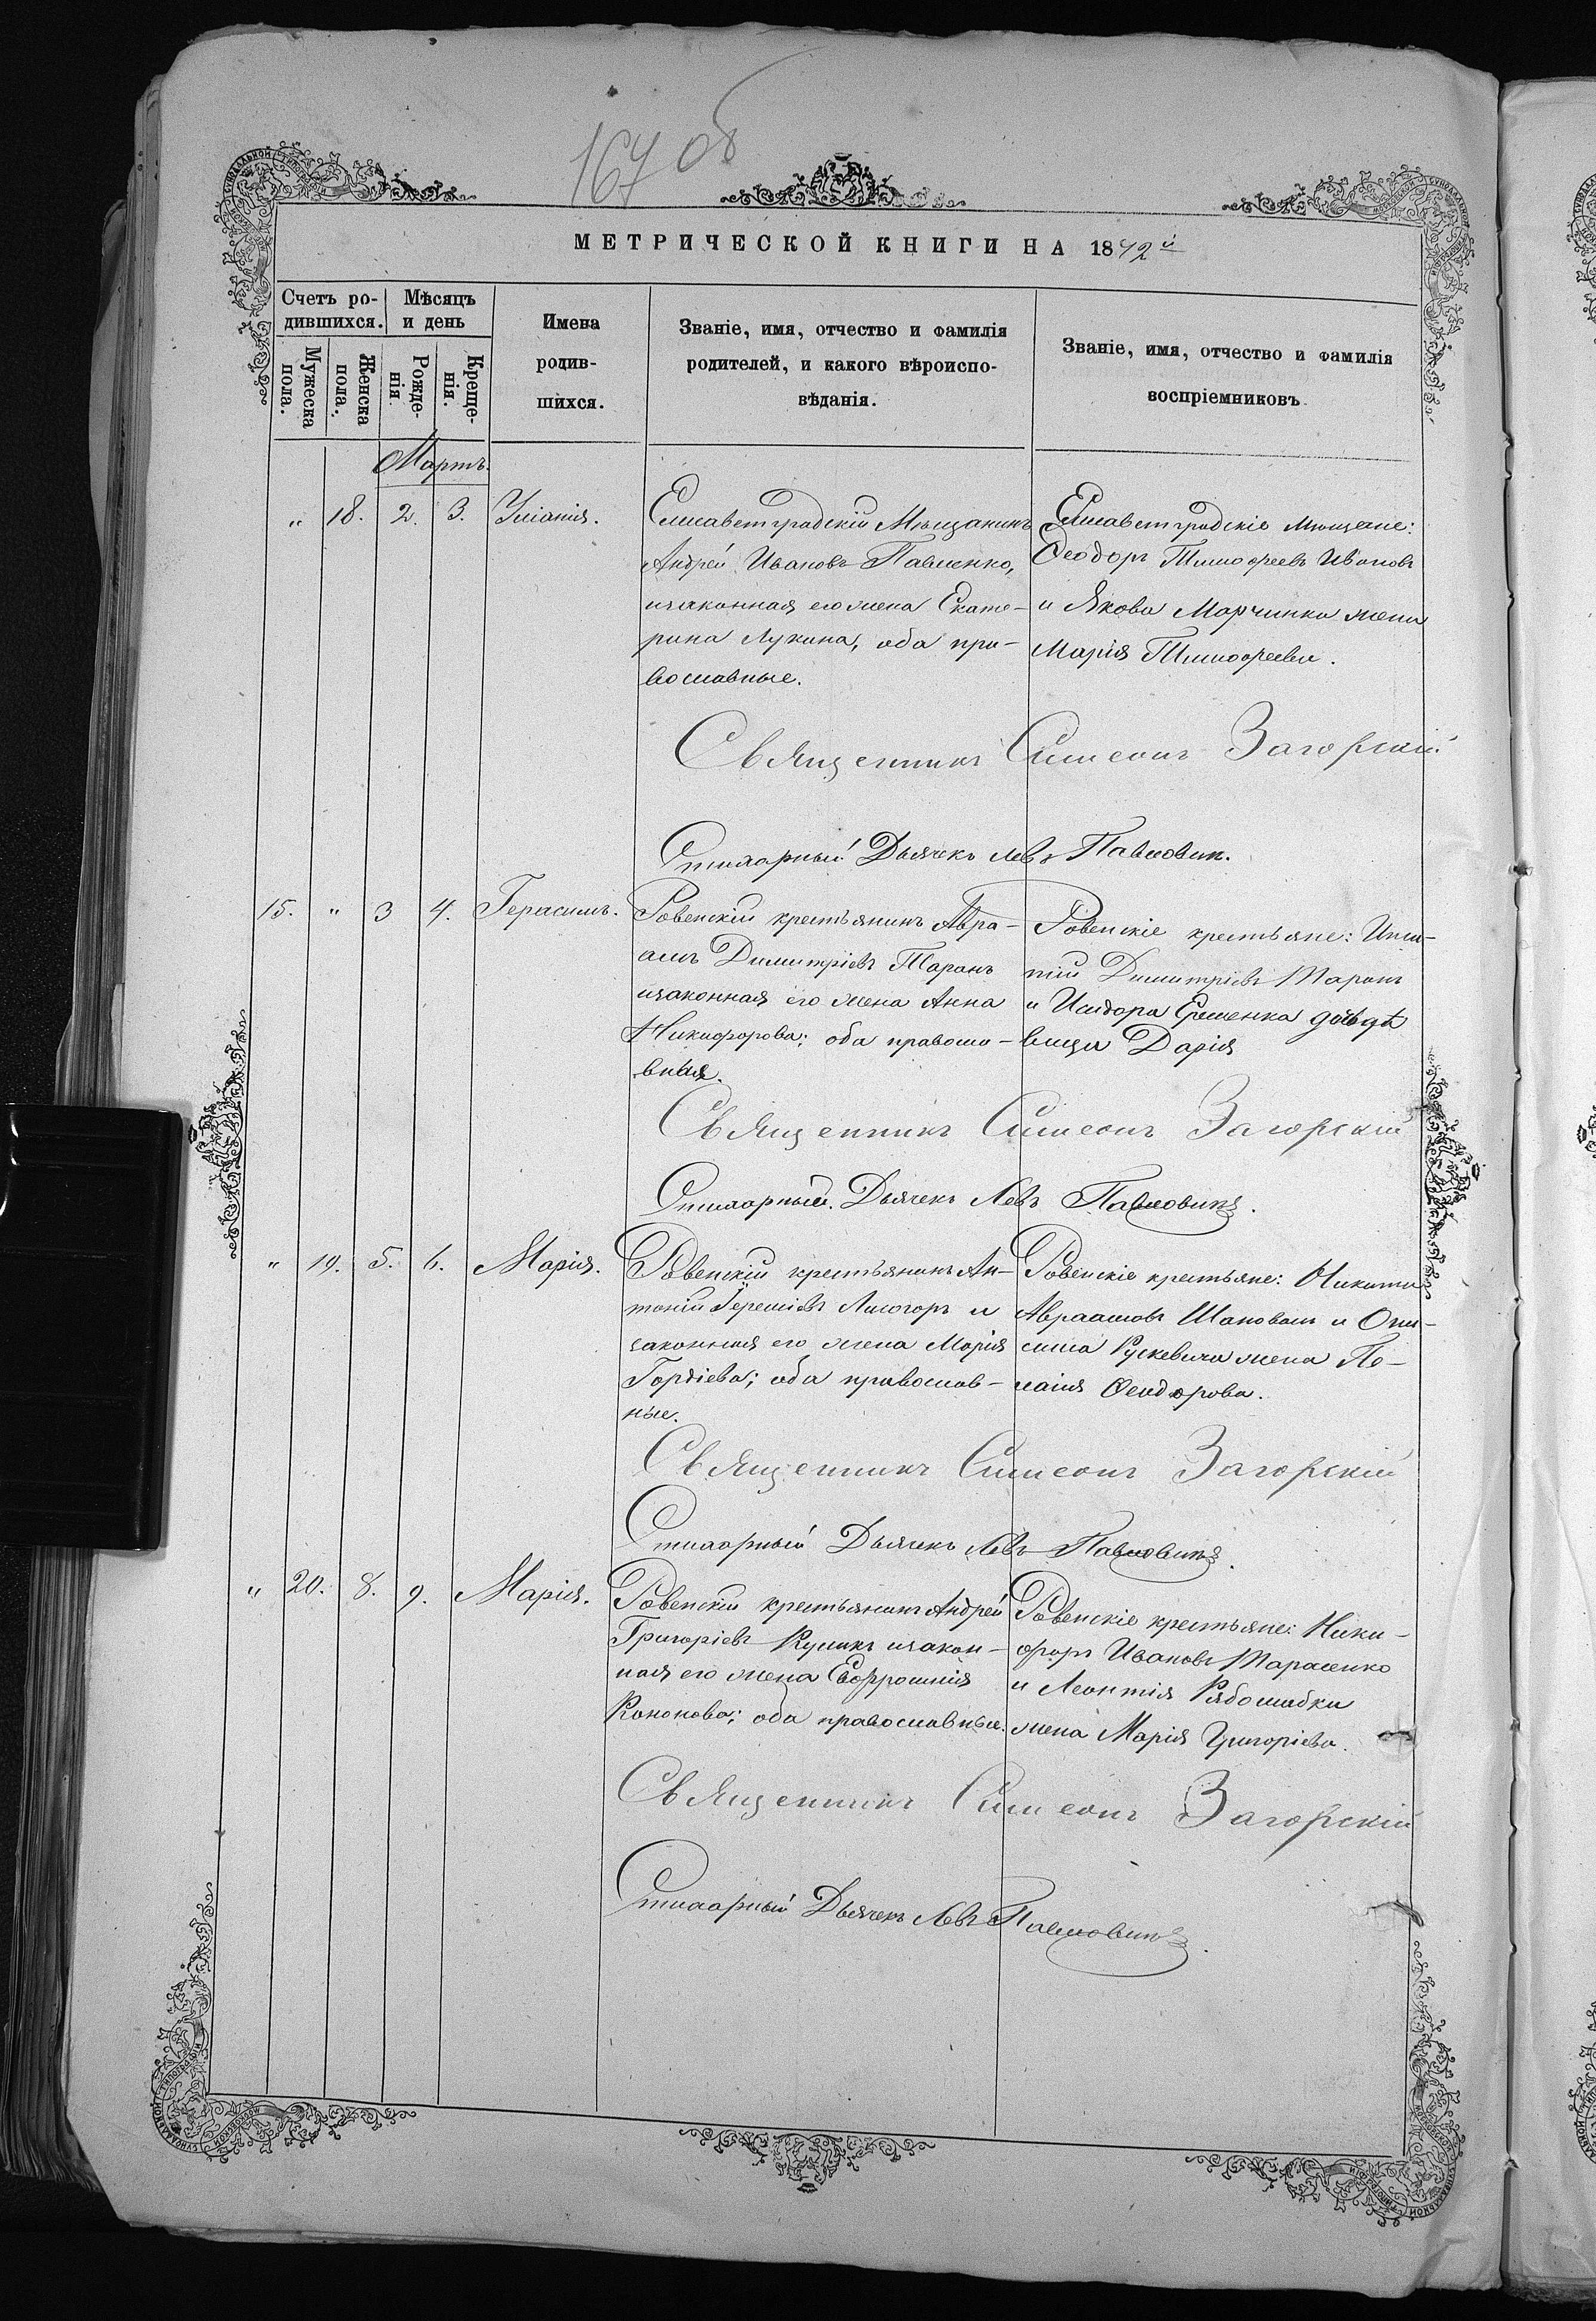 167 об
МЕТРИЧЕСКОЙ КНИГИ НА 1872й
Счетъ ро-
дившихся.
Мѣсяцъ
и день
Мужеска
пола.
Женска
пола.
Рожде-
нія.
Креще-
нія.
Имена
родив-
шихся.
Званіе, имя, отчество и фамилія
родителей, и какого вѣроиспо-
вѣданія.
Званіе, имя, отчество и фамилія
воспріемниковъ.
Мартъ.
" 18. 2. 3. Уліанія.
Елисаветградскій Мѣщанинъ
Андрей Ивановъ Павленко,
изаконная его жена Екате-
рина Лукина, оба пра-
вославные.
Елисаветградскіе мѣщане:
Ѳеодоръ Тимофеевъ Ивановъ
и Якова Марчинки жена
Марія Тимофеева.
Священникъ Симеонъ Загорскій
Стихарный Дьячекъ Левъ Павлович.
15. " 3 4. Герасимъ.
Ровенскій крестьянинъ Авра-
амъ Димитріевъ Таранъ
изаконная его жена Анна
Никифорова; оба правосла-
вныя.
Ровенскіе крестьяне: Ипа-
тій Димитріевъ Таранъ
и Исидора Ерменка дочь дѣ
вица Дарія
Священникъ Симеонъ Загорскій
Стихарный Дьячекъ Левъ Павловичъ.
" 19. 5. 6. Марія.
Ровенскій крестьянинъ Ан-
тоній Іереміевъ Лисогоръ и
законная его жена Марія
Гордіева; оба православ-
ные.
Ровенскіе крестьяне: Никита
Авраамовъ Шаповалъ и Они-
сима Рускевича жена Пе-
лагія Ѳеодорова.
Священникъ Симеонъ Загорскій
Стихарный Дьячекъ Левъ Павловичъ.
" 20. 8. 9. Марія.
Ровенскій крестьянинъ Андрей
Григоріевъ Куликъ изакон-
ная его жена Евфросинія
Кононова; оба православные.
Ровенскіе крестьяне: Ники-
форъ Ивановъ Тарасенко
и Леонтія Рябошабки
жена Марія Григоріева.
Священникъ Симеонъ Загорскій
Стихарный Дьячекъ Левъ Павловичъ.